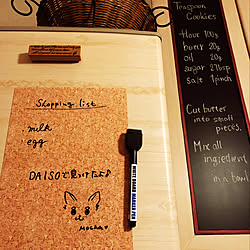 Shopping list
milk
egg
DAISOで見つけたよ♪
Mocha
WHITE BOARD MARKER PEN
Teaspoon
Cookies
flour 100g
butter 20g
oil 20g
sugar 2tbsp
salt 1pinch
Cut butter
into small
pieces.
Mix all
ingredient
in a bowl